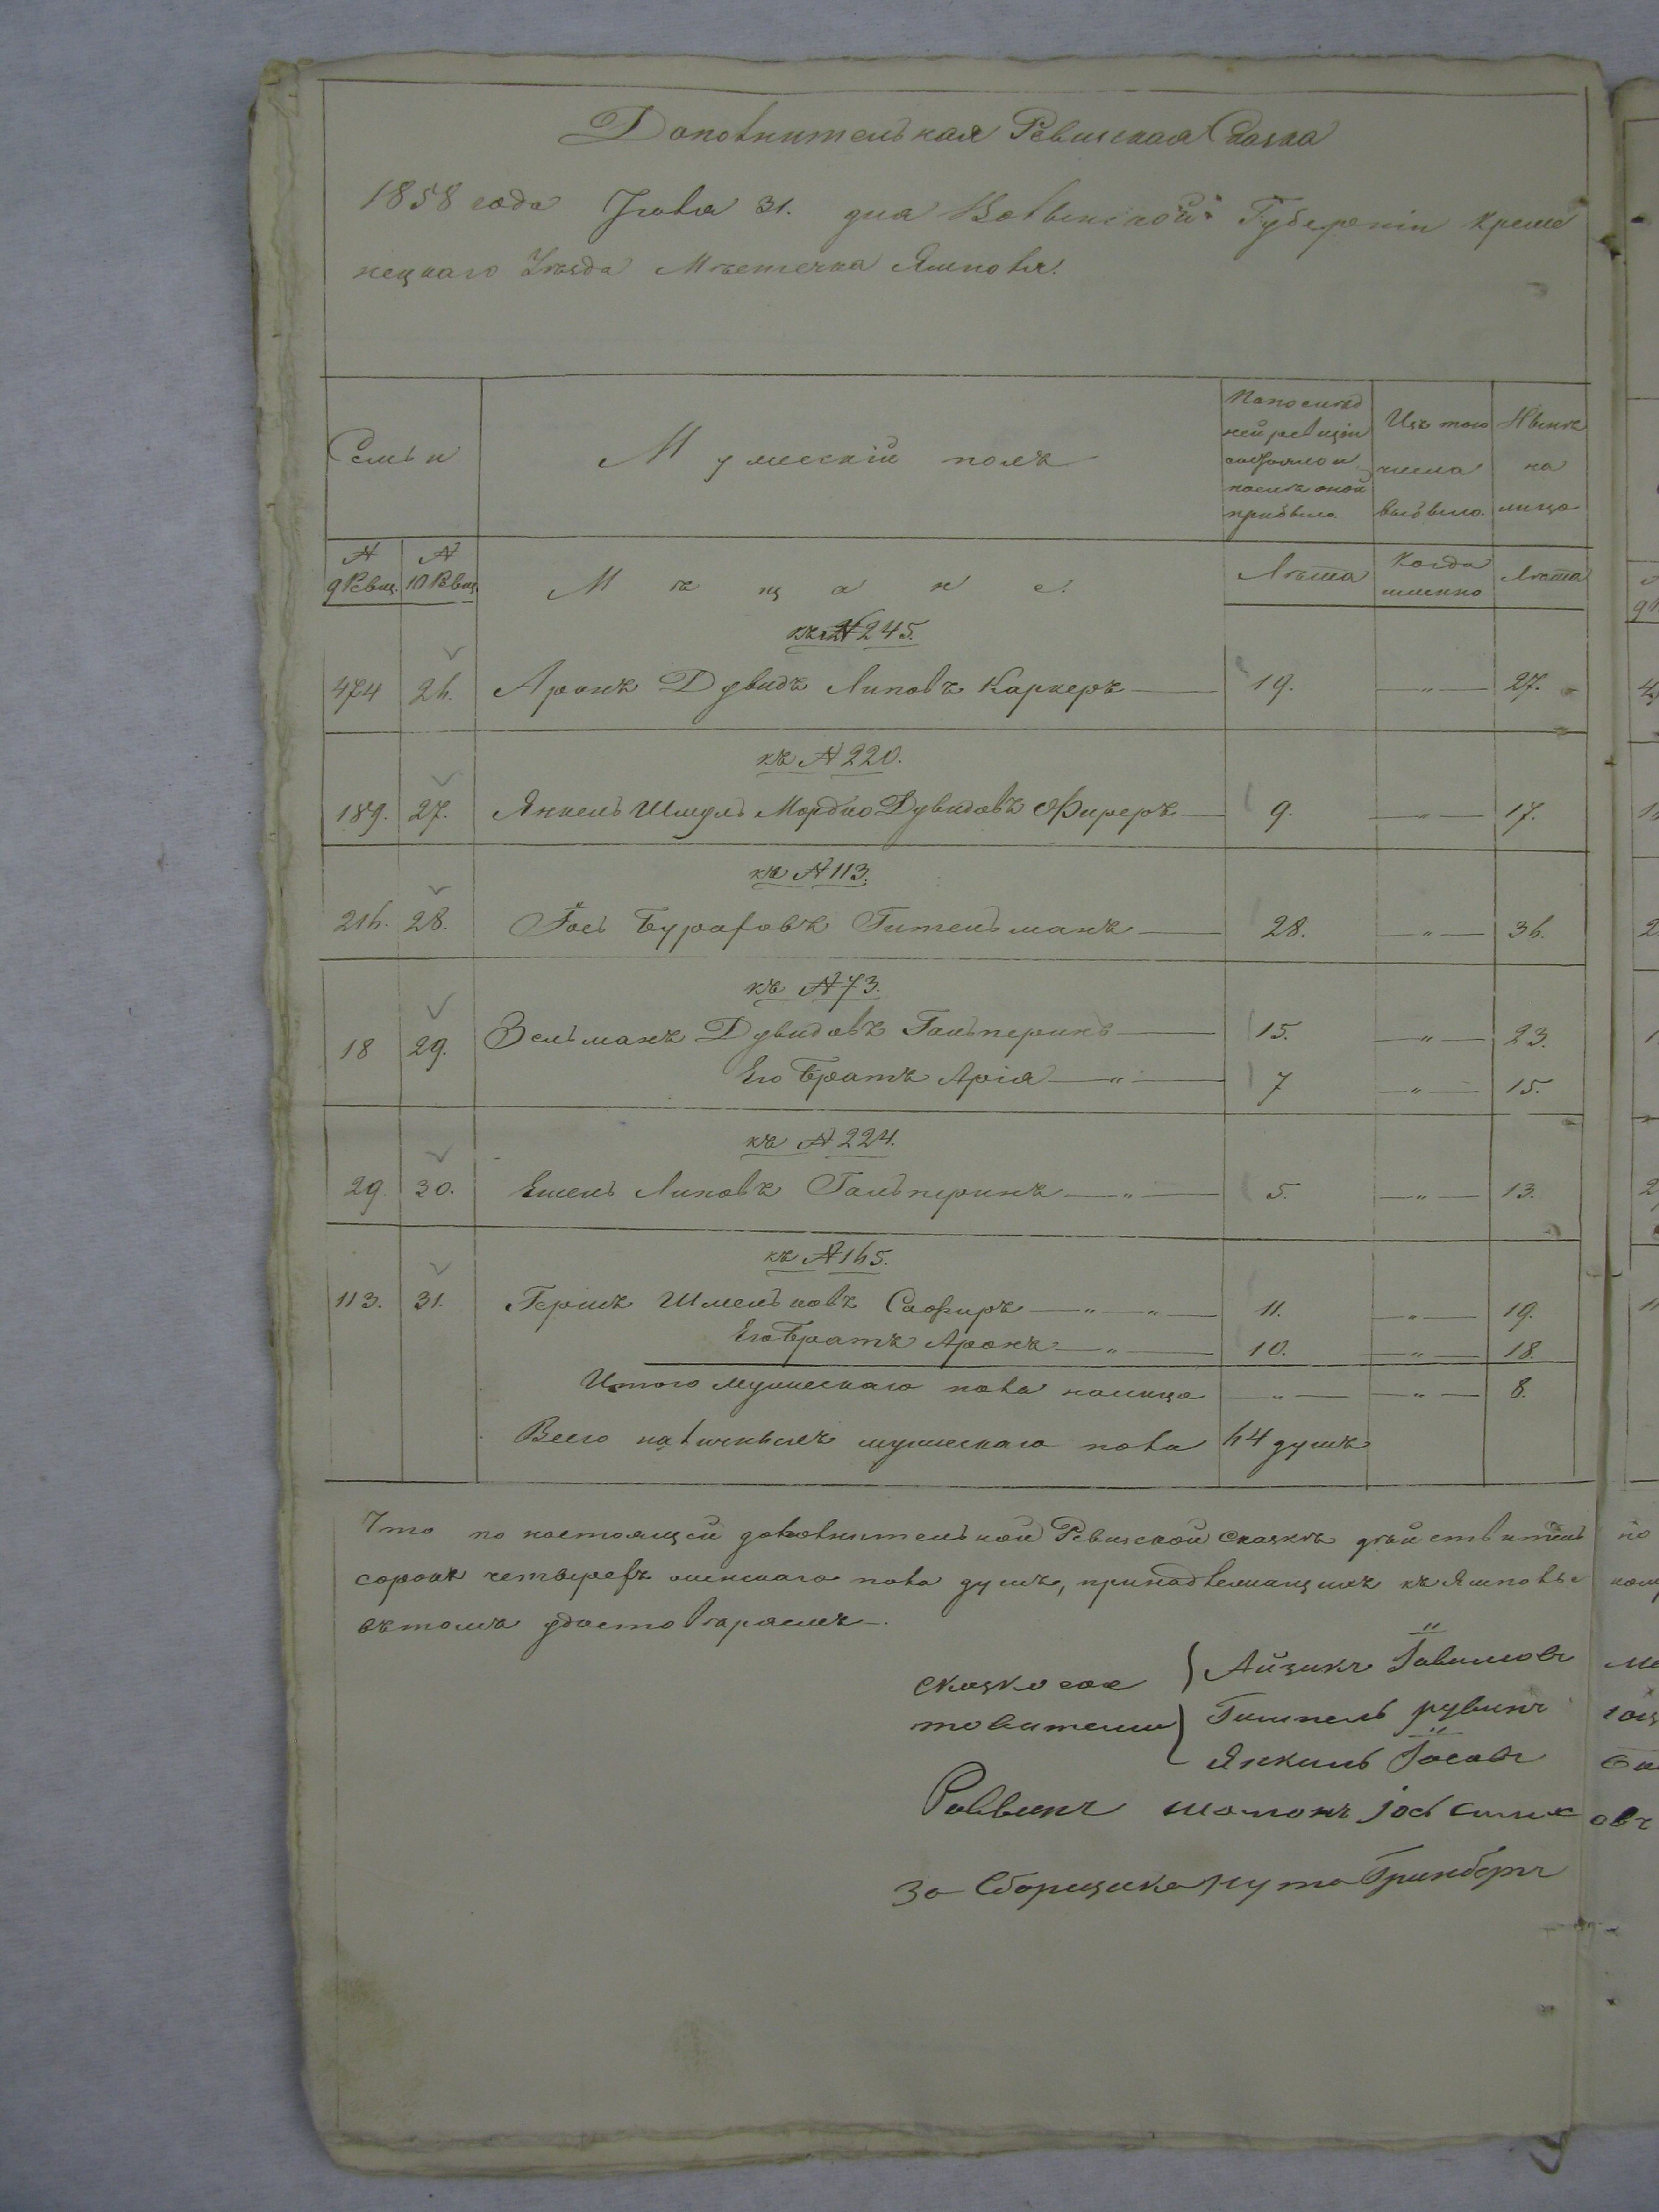 Дополнительная Ревизская Сказка
1858 года Іюля 31. дня Волынской Губерніи Креме
нецкаго Уѣзда Мѣстечка Ямполя.
Семьи
Мужескій полъ
По послѣд
ней ревизіи
состояло и
послѣ оной
прибыло.
Изъ того
числа
выбыло.
Нынѣ
на
лицо
№
9 Ревиз.
№
10 Ревиз.
Мѣщане.
Лѣта
Когда
именно
Лѣта
къ № 245.
474 26. Аронъ Дувидъ Липовъ Каркеръ — 19. — " — 27.
къ № 220.
189. 27. Янкель Шмуль Мордко Дувидовъ Фиреръ — 9. — " — 17.
къ № 113.
216. 28. Іось Бураховъ Гительманъ — 28. — " — 36.
къ № 73.
18 29. Зельманъ Дувидовъ Гальперинъ — 15. — " — 23.
Его Братъ Арія — " — 7 — " — 15.
къ № 224.
29. 30. Емель Липовъ Гальперинъ — " — 5. — " — 13.
къ № 165.
113. 31. Гершъ Шмельковъ Сафиръ — " — " — 11. — " — 19.
Его Братъ Аронъ — " — 10. — " — 18.
Итого мужескаго пола налицо — " — — " — 8.
Всего наличныхъ мужескаго пола 64 душъ
Что по настоящей дополнительной Ревизской Сказкѣ дѣйствитель
сорокъ четырехъ женскаго пола душъ, принадлежащихъ къ Ямполь
въ томъ удостовѣряемъ.
Сказкосос
тавители
Айзикъ
Гимпель рувинъ
Янкиль Іосовъ
Раввинъ шоломъ іось
За Сборщика Нута Гринбергъ